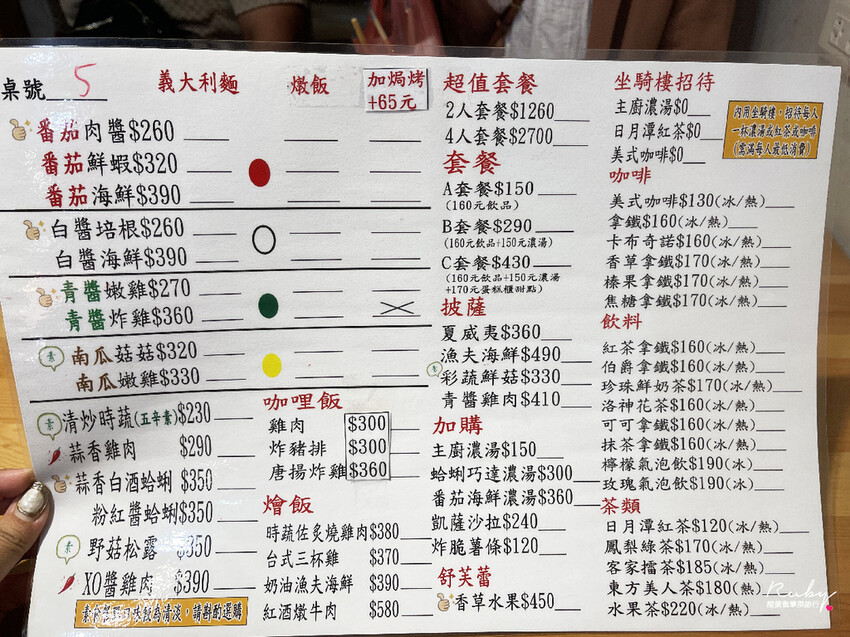 桌號 5 義大利麵 燉飯 加焗烤
+65元
番茄肉醬$260
番茄鮮蝦$320
番茄海鮮$390
白醬培根$260
白醬海鮮$390
青醬嫩雞$270
青醬炸雞$360
素 南瓜菇菇$320
南瓜嫩雞$330
素 清炒時蔬(五辛素)$230
蒜香雞肉 $290
蒜香白酒蛤蜊 $350
粉紅醬蛤蜊$350
素 野菇松露 $350
XO醬雞肉 $390
素食餐點口味較為清淡，請斟酌選購
咖哩飯
雞肉 $300
炸豬排 $300
唐揚炸雞$360
燴飯
時蔬佐炙燒雞肉$380
台式三杯雞 $370
奶油漁夫海鮮 $390
紅酒燉牛肉 $580
超值套餐
2人套餐$1260
4人套餐$2700
套餐
A套餐$150
(160元飲品)
B套餐$290
(160元飲品+150元濃湯)
C套餐$430
(160元飲品+150元濃湯
+170元蛋糕櫃甜點)
披薩
夏威夷$360
漁夫海鮮$490
素 彩蔬鮮菇$330
青醬雞肉$410
加購
主廚濃湯$150
蛤蜊巧達濃湯$300
番茄海鮮濃湯$360
凱薩沙拉$240
炸脆薯條$120
舒芙蕾
香草水果$450
坐騎樓招待
主廚濃湯$0
日月潭紅茶$0
美式咖啡$0
內用坐騎樓，招待每人
一杯濃湯或紅茶或咖啡
(需滿每人最低消費)
咖啡
美式咖啡$130(冰/熱)
拿鐵$160(冰/熱)
卡布奇諾$160(冰/熱)
香草拿鐵$170(冰/熱)
榛果拿鐵$170(冰/熱)
焦糖拿鐵$170(冰/熱)
飲料
紅茶拿鐵$160(冰/熱)
伯爵拿鐵$160(冰/熱)
珍珠鮮奶茶$170(冰/熱)
洛神花茶$160(冰/熱)
可可拿鐵$160(冰/熱)
抹茶拿鐵$160(冰/熱)
檸檬氣泡飲$190(冰)
玫瑰氣泡飲$190(冰)
茶類
日月潭紅茶$120(冰/熱)
鳳梨綠茶$170(冰/熱)
客家擂茶$185(冰/熱)
東方美人茶$180(熱)
水果茶$220(冰/熱)
Ruby